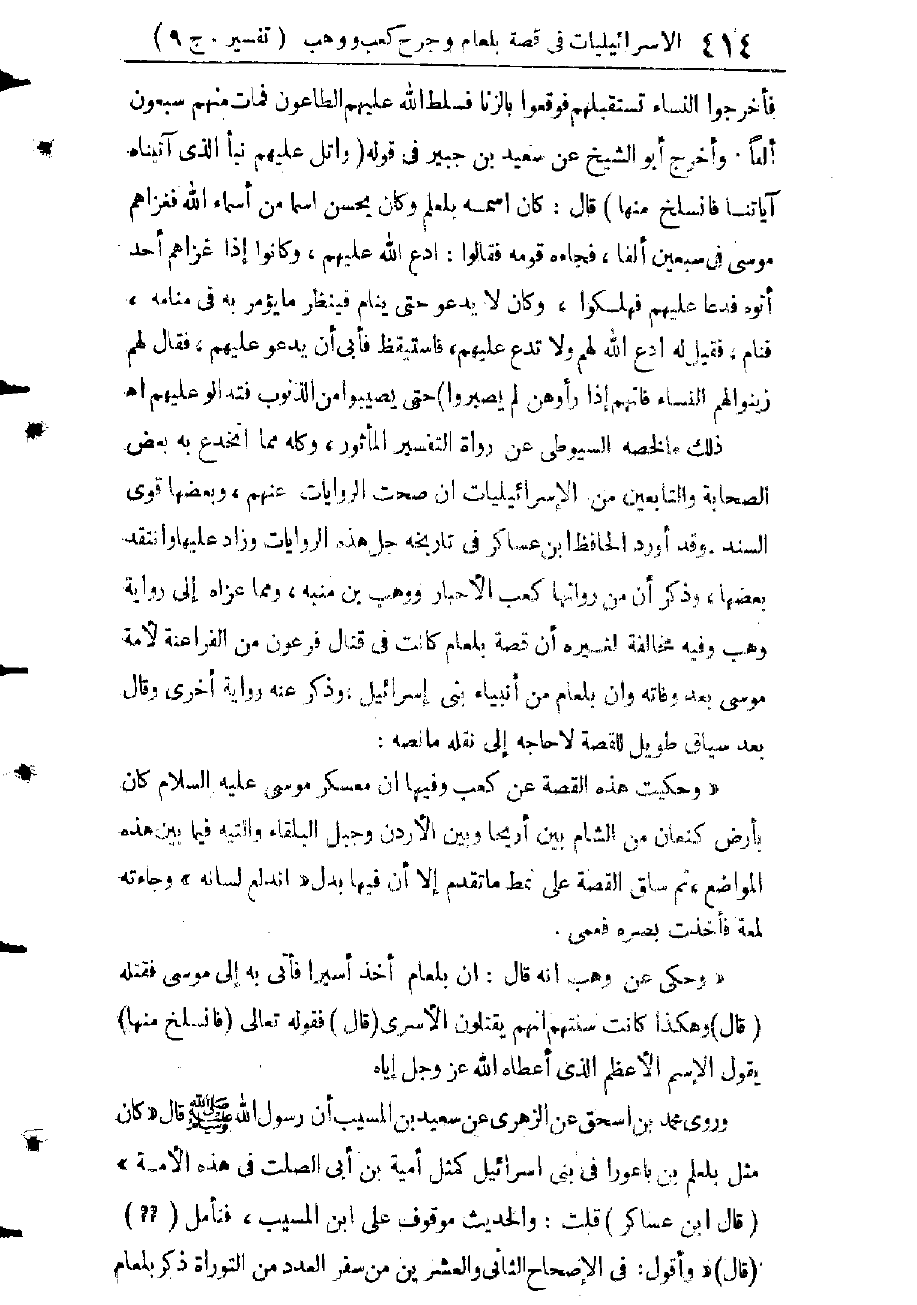 ٤١٤ الاسرائيليات فى قصة بلعام وجرح كعب ووهب ( تفسير . ج ٩ )
فأخرجوا النساء تستقبلهم فوقعوا بالزنا فسلط الله عليهم الطاعون فمات منهم سبعون
ألفاً . وأخرج أبو الشيخ عن سعيد بن جبير فى قوله ( واتل عليهم نبأ الذى آتيناه
آياتنا فانسلخ منها ) قال : كان اسمه بلعلم وكان يحسن اسما من أسماء الله فغزاهم
موسى فى سبعين ألفا ، فجاءه قومه فقالوا : ادع الله عليهم ، وكانوا إذا غزاهم أحد
أتوه فدعا عليهم فهلكوا ، وكان لا يدعو حتى ينام فينظر ما يؤمر به فى منامه ،
فنام ، فقيل له ادع الله لهم ولا تدع عليهم، فاستيقظ فأبى أن يدعو عليهم ، فقال لهم
زينوا لهم النساء فانهم إذا رأوهن لم يصبروا) حتى يصيبوا من الذنوب فتدالو عليهم اه
ذلك ما لخصه السيوطى عن رواة التفسير المأثور ، وكله مما انخدع به بعض
الصحابة والتابعين من الإسرائيليات ان صحت الروايات عنهم ، وبعضها قوى
السند . وقد أورد الحافظ ابن عساكر فى تاريخه جل هذه الروايات وزاد عليها وانتقد
بعضها ، وذكر أن من رواتها كعب الأحبار ووهب بن منبه ، ومما عزاه إلى رواية
وهب وفيه مخالفة لغيره أن قصة بلعام كانت فى قتال فرعون من الفراعنة لأمة
موسى بعد وفاته وان بلعام من أنبياء بنى إسرائيل ، وذكر عنه رواية أخرى وقال
بعد سياق طويل للقصة لا حاجه إلى نقله ما نصه :
« وحكيت هذه القصة عن كعب وفيها ان معسكر موسى عليه السلام كان
بأرض كنعان من الشام بين أريحا وبين الأردن وجبل البلقاء والتيه فيما بين هذه
المواضع ، ثم ساق القصة على نمط ما تقدم إلا أن فيها بدل « اندلع لسانه » وجاءته
لمعة فأخذت بصره فعمى .
« وحكى عن وهب انه قال : ان بلعام أخذ أسيرا فأتى به إلى موسى فقتله
( قال) وهكذا كانت سنتهم انهم يقتلون الأسرى (قال ) فقوله تعالى (فانسلخ منها)
يقول الإسم الأعظم الذى أعطاه الله عز وجل إياه
وروى محمد بن اسحق عن الزهرى عن سعيد بن المسيب أن رسول الله ﷺ قال « كان
مثل بلعلم بن باعورا فى بنى اسرائيل كمثل أمية بن أبى الصلت فى هذه الأمة »
( قال ابن عساكر ) قلت : والحديث موقوف على ابن المسيب ، فتأمل ( ؟؟ )
(قال) « وأقول : فى الإصحاح الثانى والعشرين من سفر العدد من التوراة ذكر بلعام